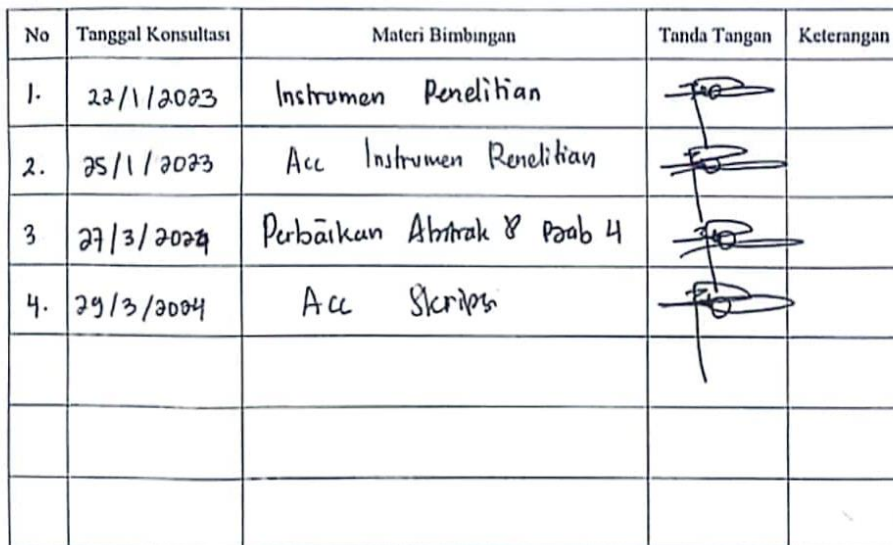 No Tanggal Konsultasi Materi Bimbingan Tanda Tangan Keterangan
1. 22/1/2023 Instrumen Penelitian
2. 25/1/2023 Acc Instrumen Penelitian
3 27/3/2024 Perbaikan Abstrak & Bab 4
4. 29/3/2024 Acc Skripsi